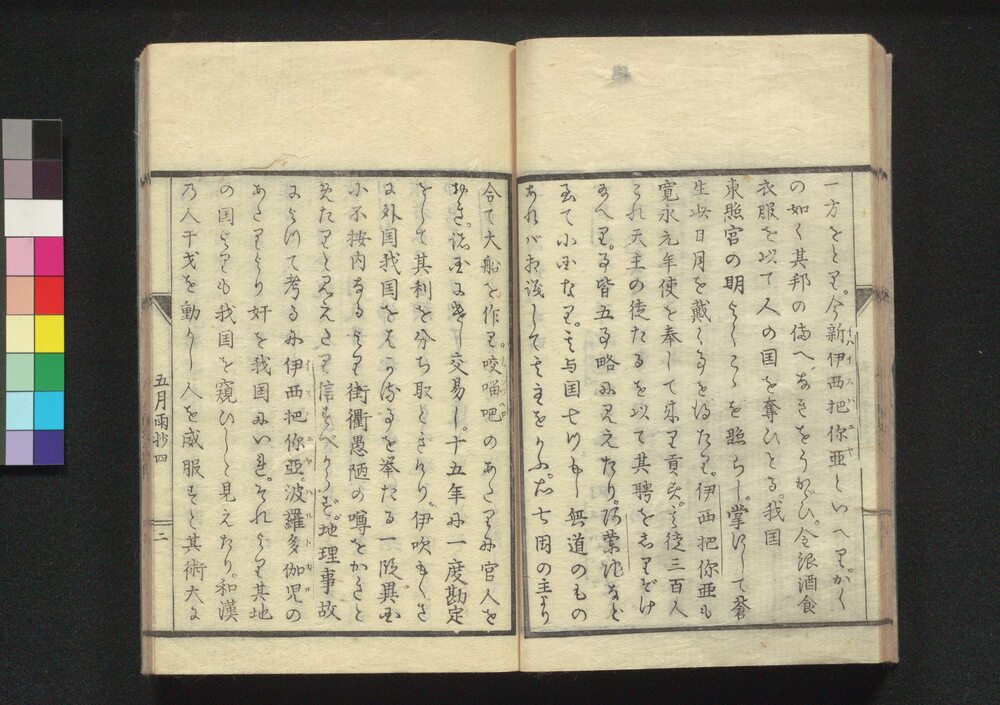 一方をとり。今新伊西把你亜といへり。かく
の如く其邦の備へなきをうかゞひ。金銀酒食
衣服を以て人の国を奪ひとる。我国
東照宮の明よくこゝを照らし。掌にして蒼
生此日月を戴くことを得たり。伊西把你亜も
寛永元年使を奉して来り貢す。三徒三百人
これ天主の徒たるを以て其聘を志りぞけ
給へり。事皆五事略に見えたり。
至て小国なり。与国七ツ有し無道のもの
あれバ相議して主を
合て大船を作り咬��吧のあたりに官人を
諸国に交易し。十五年に一度勘定
をして其利を分ち取とぎり。伊吹もくさ
に外国我国を挙たる一段異国
不案内なるより街衢愚陋の噂をかきと
めたりと見えたり信ずべからず。地理事故
によつて考るに伊西把你亜。波羅多伽児の
あたりより奸を我国にいれ。それより其地
の国よりも我国を窺ひしと見えたり。和漢
乃人干戈を動かし人を威服すと其術大に
五月雨抄四
二